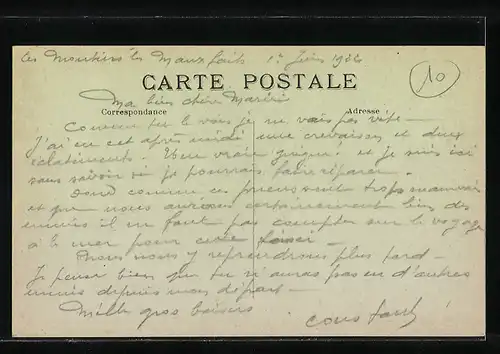 Les Moutiers les Mauxfaits 1er Juin 19
10
CARTE POSTALE
Ma bien chère
Correspondance
Adresse
Comme tu le vois je ne vais pas vite.
J'ai eu cet après midi une crevaison et deux
éclatements. Une vraie guigne et je suis ici
sans savoir si je pourrais faire réparer.
Donc comme ces pneus sont trop mauvais
et que nous aurions certainement bien des
ennuis il ne faut pas compter sur le voyage
à la mer pour cette
Nous nous y reprendrons plus tard.
Je pense bien que tu n'auras pas eu d'autres
ennuis depuis mon départ.
Mille gros baisers
Constant